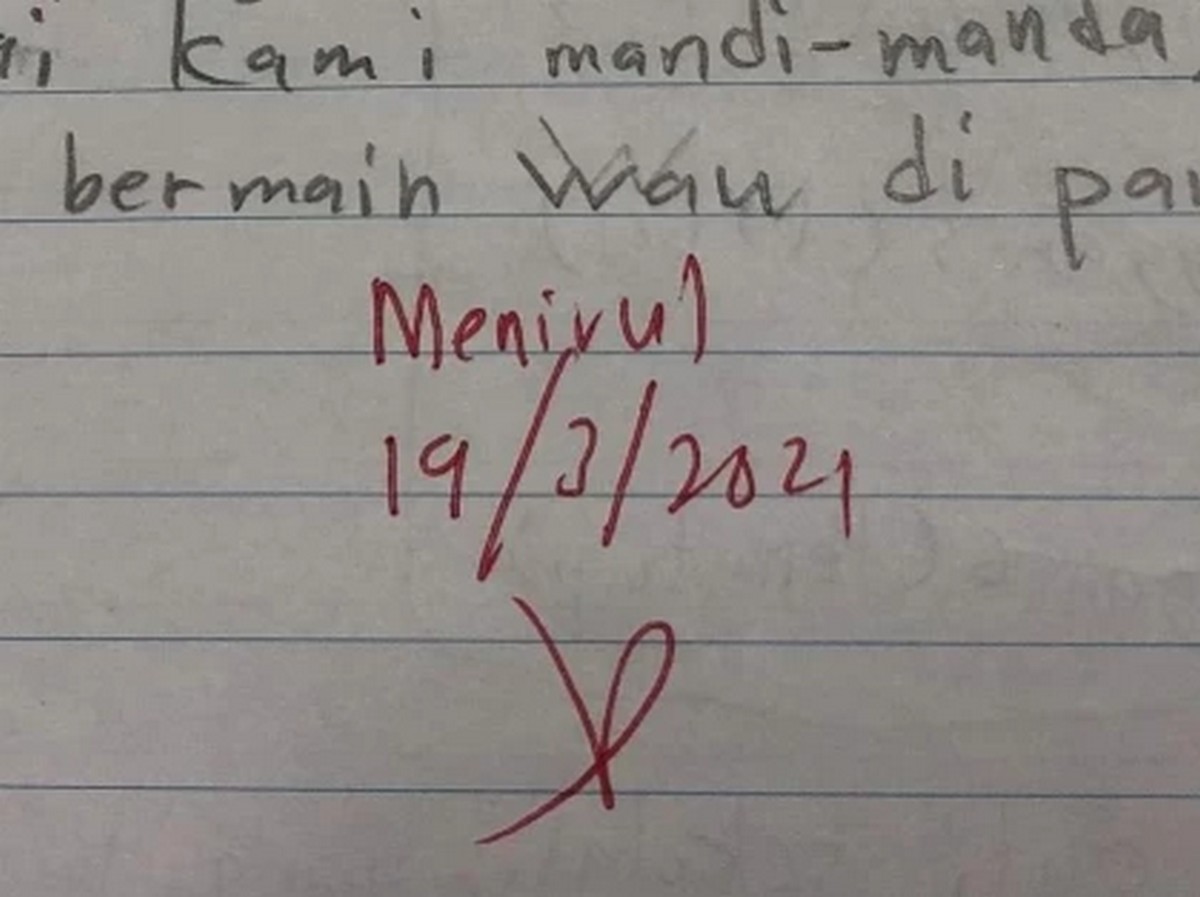 kami mandi-manda
bermain Wau di
Menirul
19/3/2021